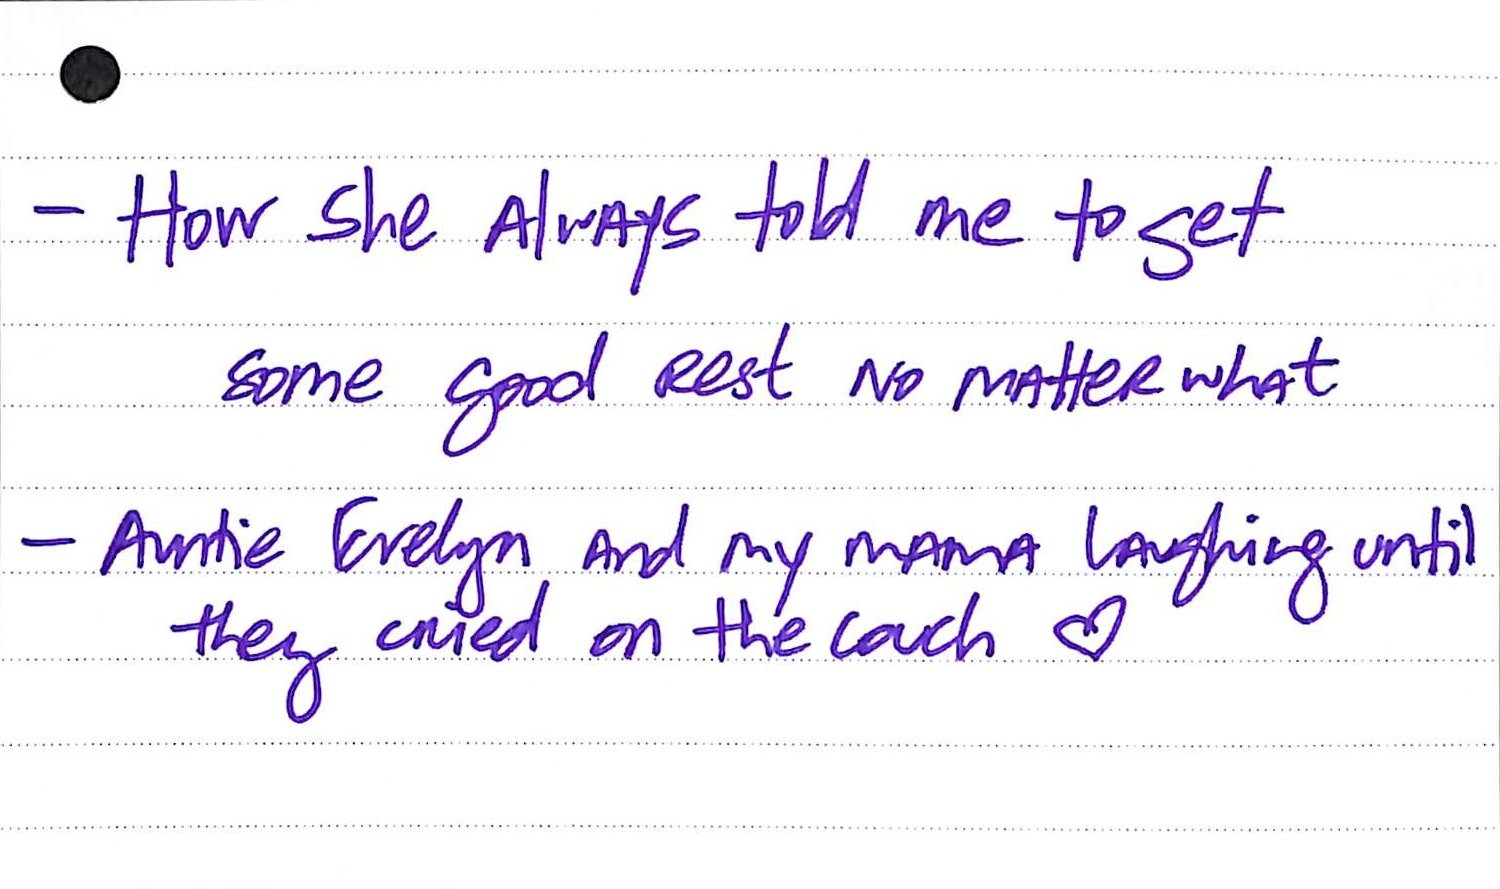 - How she always told me to get
some good rest no matter what
- Auntie Evelyn and my mama laughing until
they cried on the couch ♡